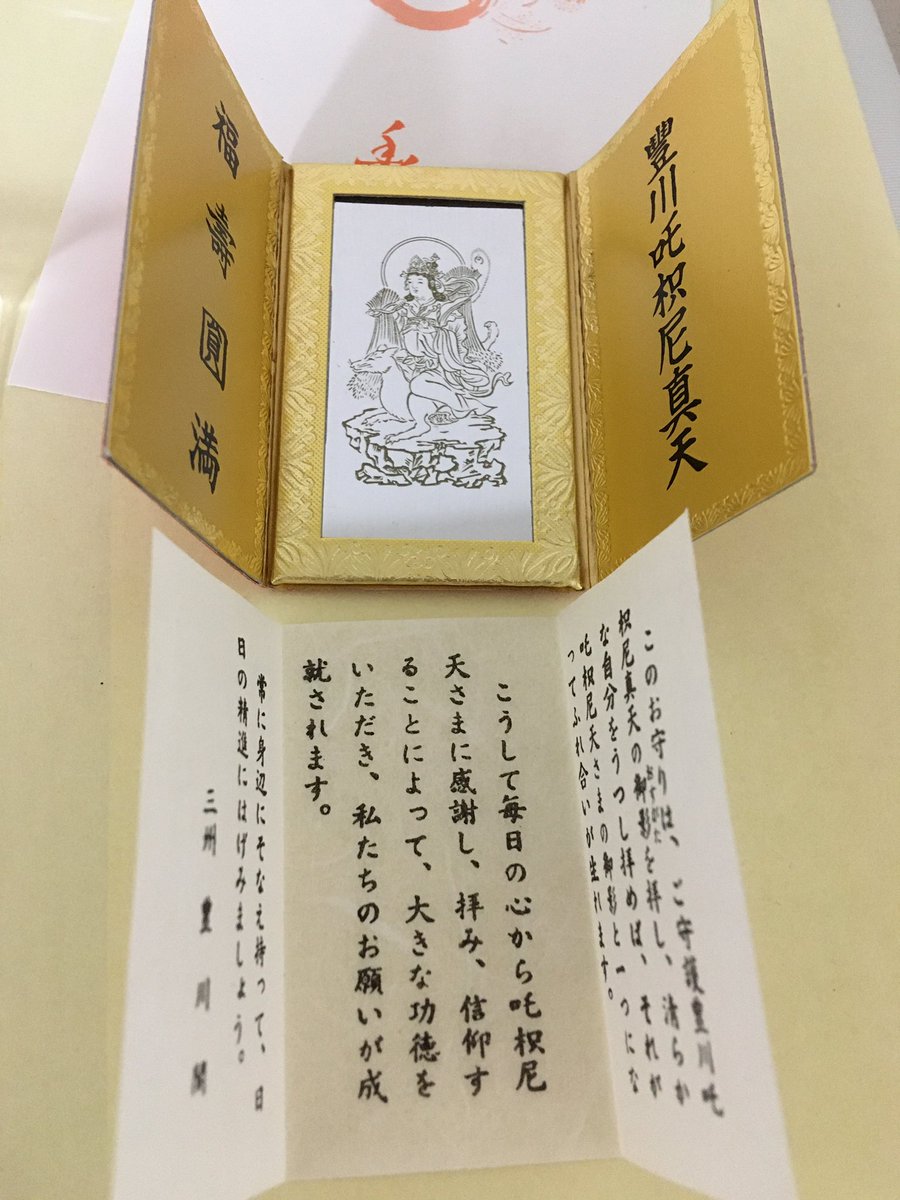 豐川吒枳尼真天
福壽圓満
このお守りは、ご守護豊川吒
枳尼真天の御影を拝し、清らか
おすがた
な自分をうつし拝めば、それが
吒枳尼天さまの御影と一つにな
ってふれ合いが生れます。
こうして毎日の心から吒枳尼
天さまに感謝し、拝み、信仰す
ることによって、大きな功徳を
いただき、私たちのお願いが成
就されます。
常に身辺にそなえ持って、日
日の精進にはげみましょう。
三州豊川閣